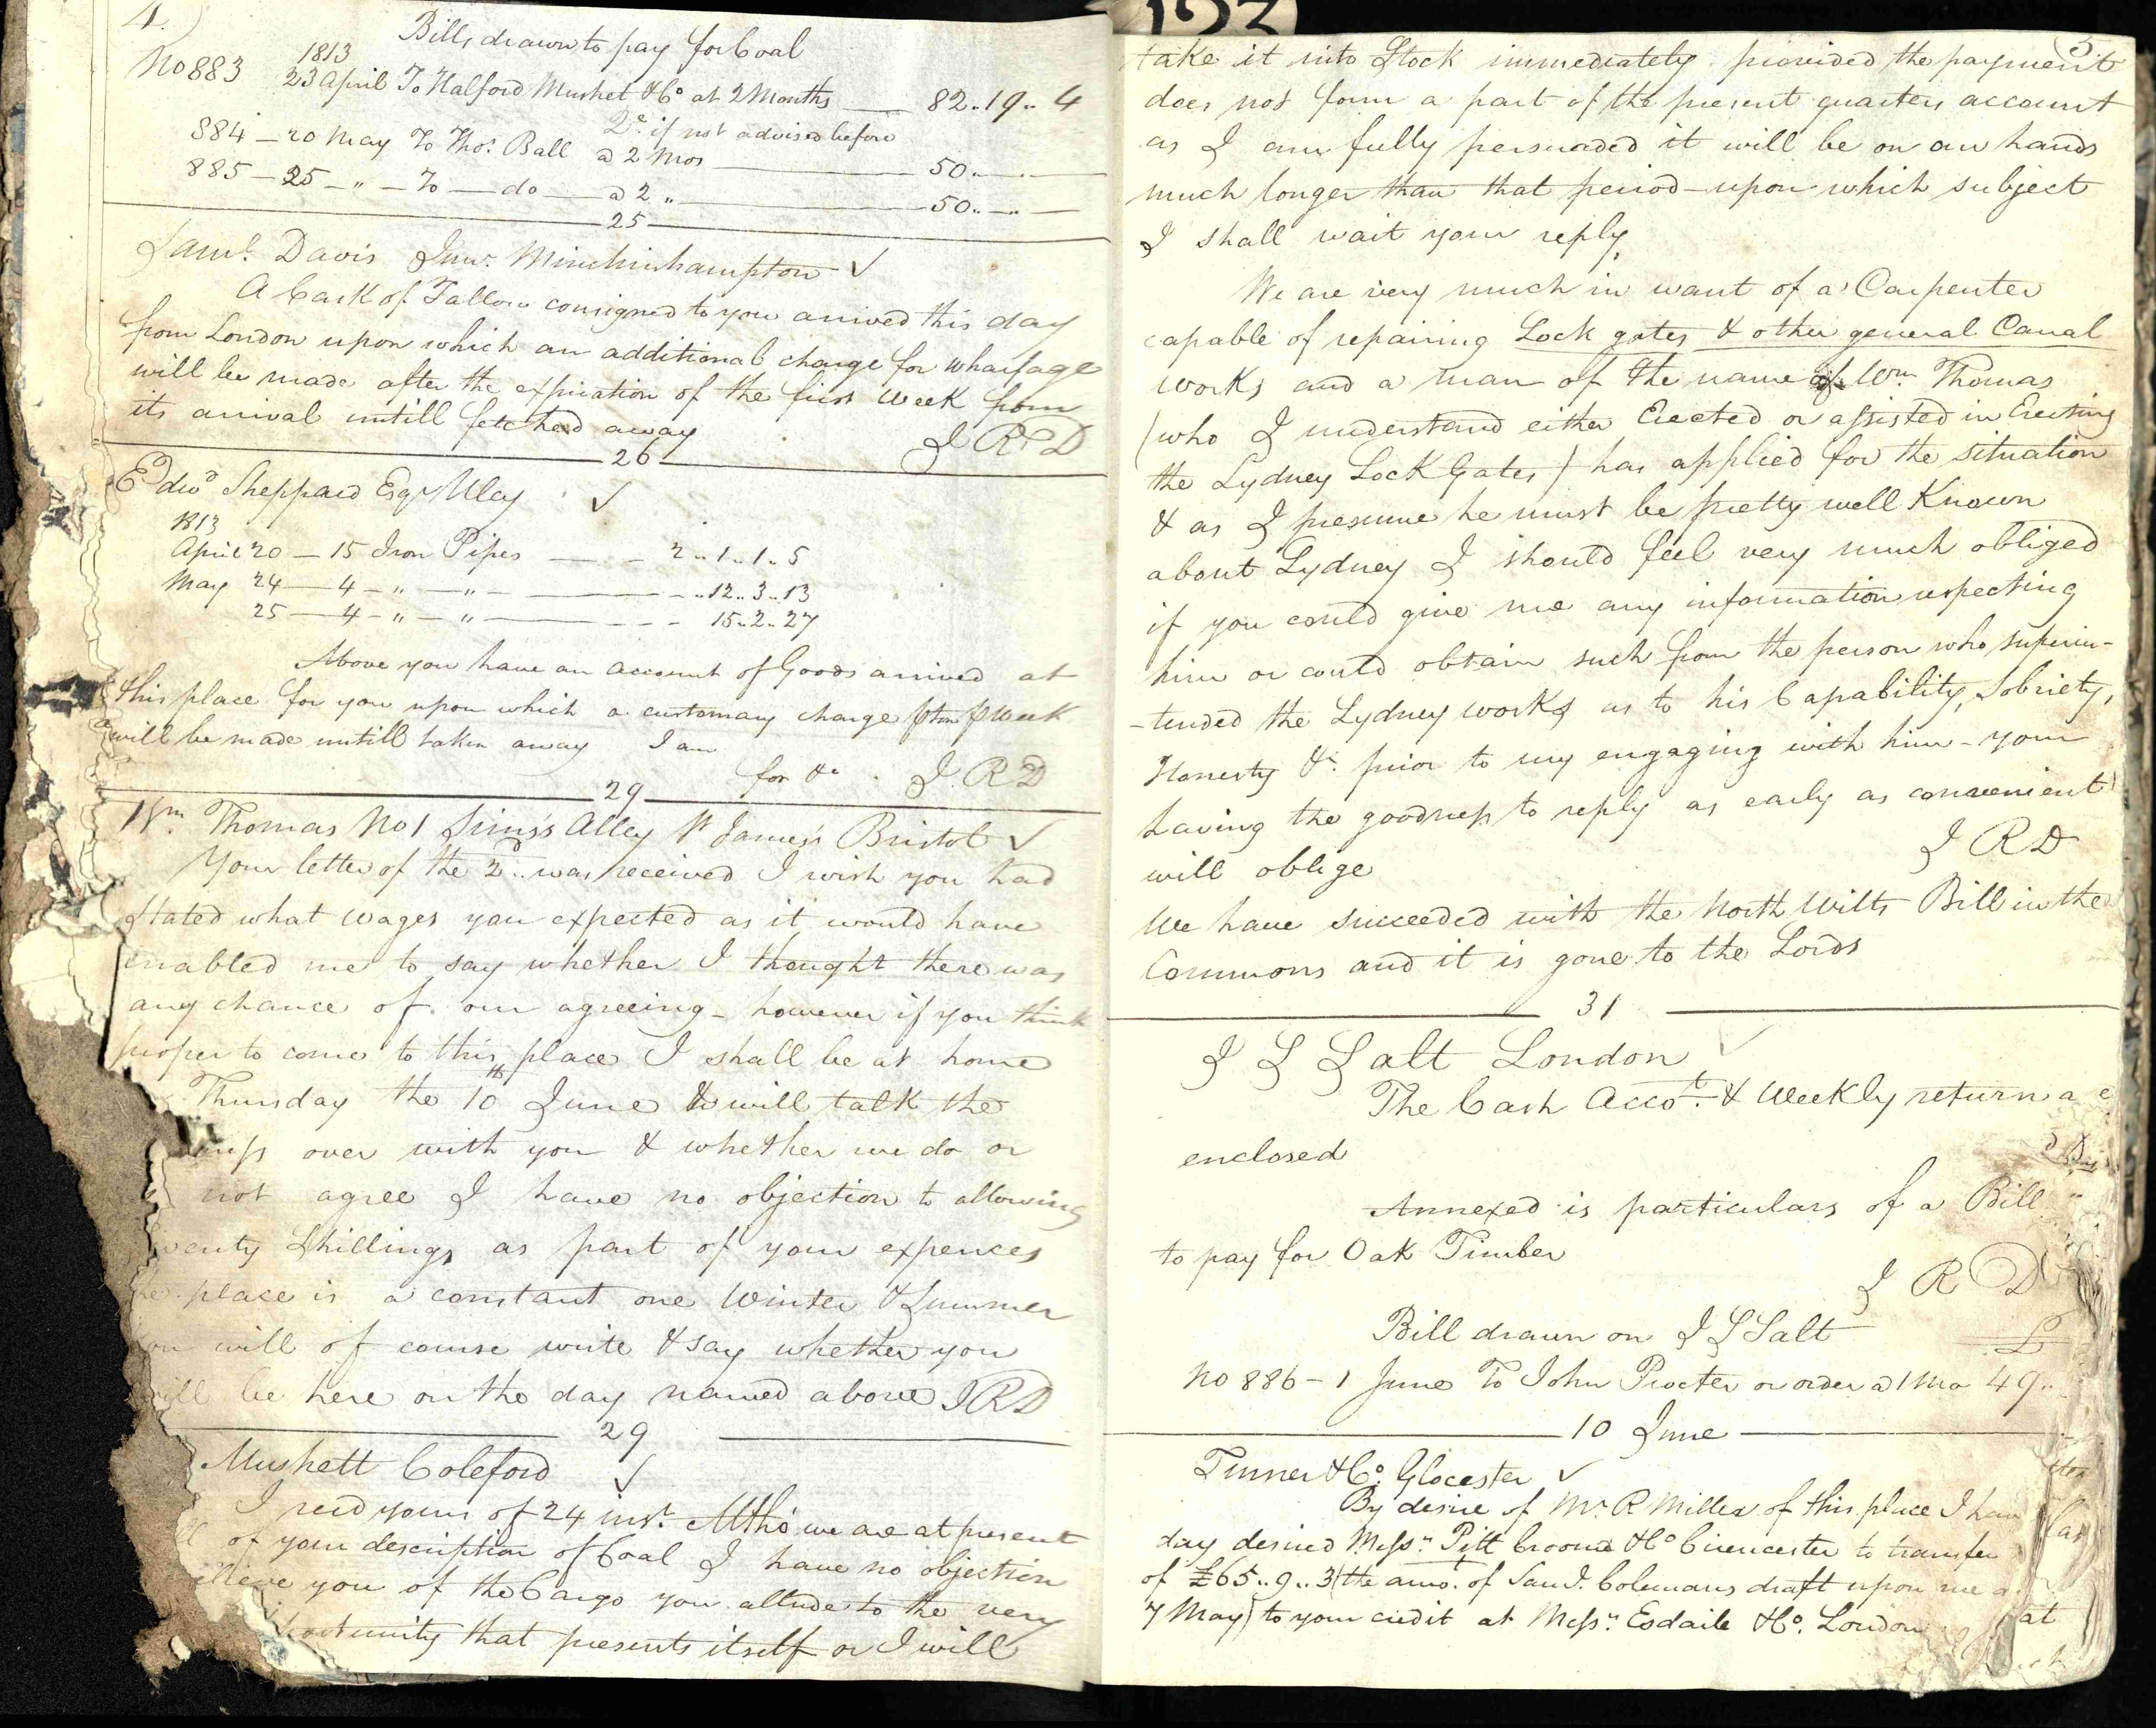 4.
Bills drawn to pay for Coal
1813
No 883 23 April To Halford Mushet & Co at 2 Months 82.. 19.. 4
if not advised before
884 – 20 May To Thos. Ball a 2 Mos 50.. – .. –
885 – 25 – „ – To – do – a 2 „ 50.. – „ –
25
Saml. Davis Junr. Minchinhampton ✓
A Cask of Tallow consigned to you arrived this day
from London upon which an additional charge for wharfage
will be made after the expiration of the first Week from
its arrival untill fetched away
J R D
26
Edwd Sheppard Esqr Uley ✓
1813
April 20 – 15 Iron Pipes – – – 2.. 1.. 1.. 5
May 24 – 4 – „ – „ – – – .. 12.. 3.. 13
25 – 4 – „ – „ – – – 15.. 2.. 27
Above you have an account of Goods arrived at
this place for you upon which a customary charge ⅌ ton ⅌ Week
will be made untill taken away I am
for &c. J. R D
29
Wm. Thomas No 1 Sims's Alley St James's Bristol ✓
Your letter of the 2d.. was received I wish you had
stated what wages you expected as it would have
enabled me to say whether I thought there was
any chance of our agreeing – however if you think
proper to come to this place I shall be at home
Thursday the 10th June & will talk the
over with you & whether we do or
not agree I have no objection to allowing
Shillings as part of your expences
place is a constant one Winter & Summer
will of course write & say whether you
will be here on the day named above J R D
29
Mushett Coleford ✓
I recd yours of 24 inst. Altho' we are at present
of your description of Coal I have no objection
you of the Cargo you allude to the very
that presents itself or I will
123
5.
take it into Stock immediately provided the payment
does not form a part of the present quarters account
as I am fully persuaded it will be on our hands
much longer than that period – upon which subject
I shall wait your reply,
We are very much in want of a Carpenter
capable of repairing Lock gates & other general Canal
works and a man of the name of Wm Thomas
(who I understand either Erected or assisted in Erecting
the Lydney Lock Gates) has applied for the situation
& as I presume he must be pretty well Known
about Lydney I should feel very much obliged
if you could give me any information respecting
him or could obtain such from the person who superin-
-tended the Lydney works as to his Capability, Sobriety,
Honesty &c. prior to my engaging with him – your
having the goodness to reply as early as convenient
will oblige
J R D
We have succeeded with the North Wilts Bill in the
Commons and it is gone to the Lords
31
J S Salt London ✓
The Cash Accot. & Weekly return a e
enclosed
Annexed is particulars of a Bill
to pay for Oak Timber
J R D
Bill drawn on J S Salt £
No 886 – 1 June To John Procter or order a 1 Mo 49..
10 June
Turner & Co. Glocester ✓
By desire of Mr R Miller of this place I have
day desired Messrs. Pitt Croome & Co Cirencester to transfer
of £65.. 9.. 3 (the amo. of Saml. Colemans draft upon me
7 May) to your credit at Messrs. Esdaile & Co. London
at